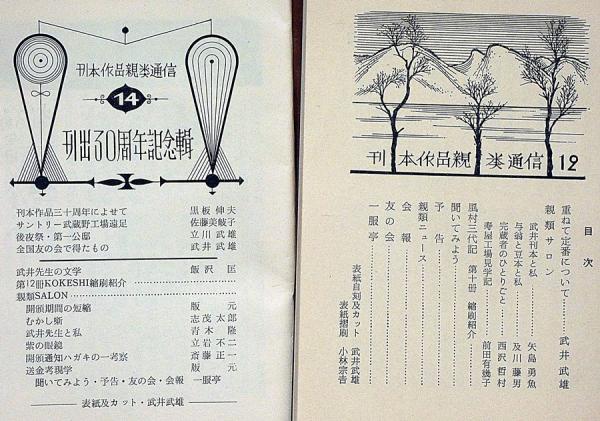 刊本作品親類通信
14
刊出30周年記念輯
刊本作品三十周年によせて 黒板伸夫
サントリー武蔵野工場遠足 佐藤美岐子
後夜祭・第一公邸 立川武雄
全国友の会で得たもの 武井武雄
武井先生の文学 飯沢匡
第12冊KOKESHI縮刷紹介
親類SALON
開頒期間の短縮 版元
むかし噺 志茂太郎
武井先生と私 青木隆
紫の眼鏡 立岩不二
開頒通知ハガキの一考察 斎藤正一
送金考現学 版元
聞いてみよう・予告・友の会・会報 一服亭
表紙及カット・武井武雄
刊本作品親類通信 12
目次
重ねて定番について 武井武雄
親類サロン
武井刊本と私 矢島勇魚
与翁と豆本と私 及川藤男
完蔵者のひとりごと 西沢哲村
寿屋工場見学記 前田有幾子
風村三代記 第十冊 縮刷紹介
聞いてみよう
親類ニュース
予告
会報
友の会
一服亭
表紙自刻及カット 武井武雄
表紙摺刷 小林宗吉